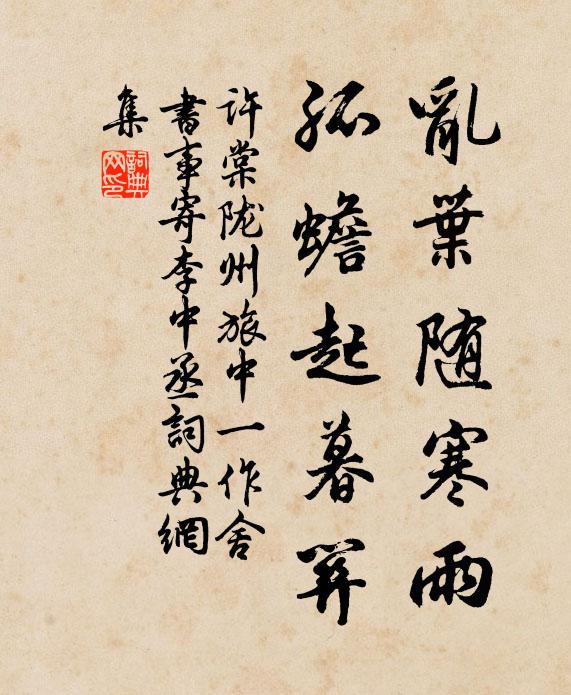 亂葉随寒雨
孤蟾起暮關
許棠陇州旅中一作舍
書事寄李中丞詞典網
集
詞典
网印